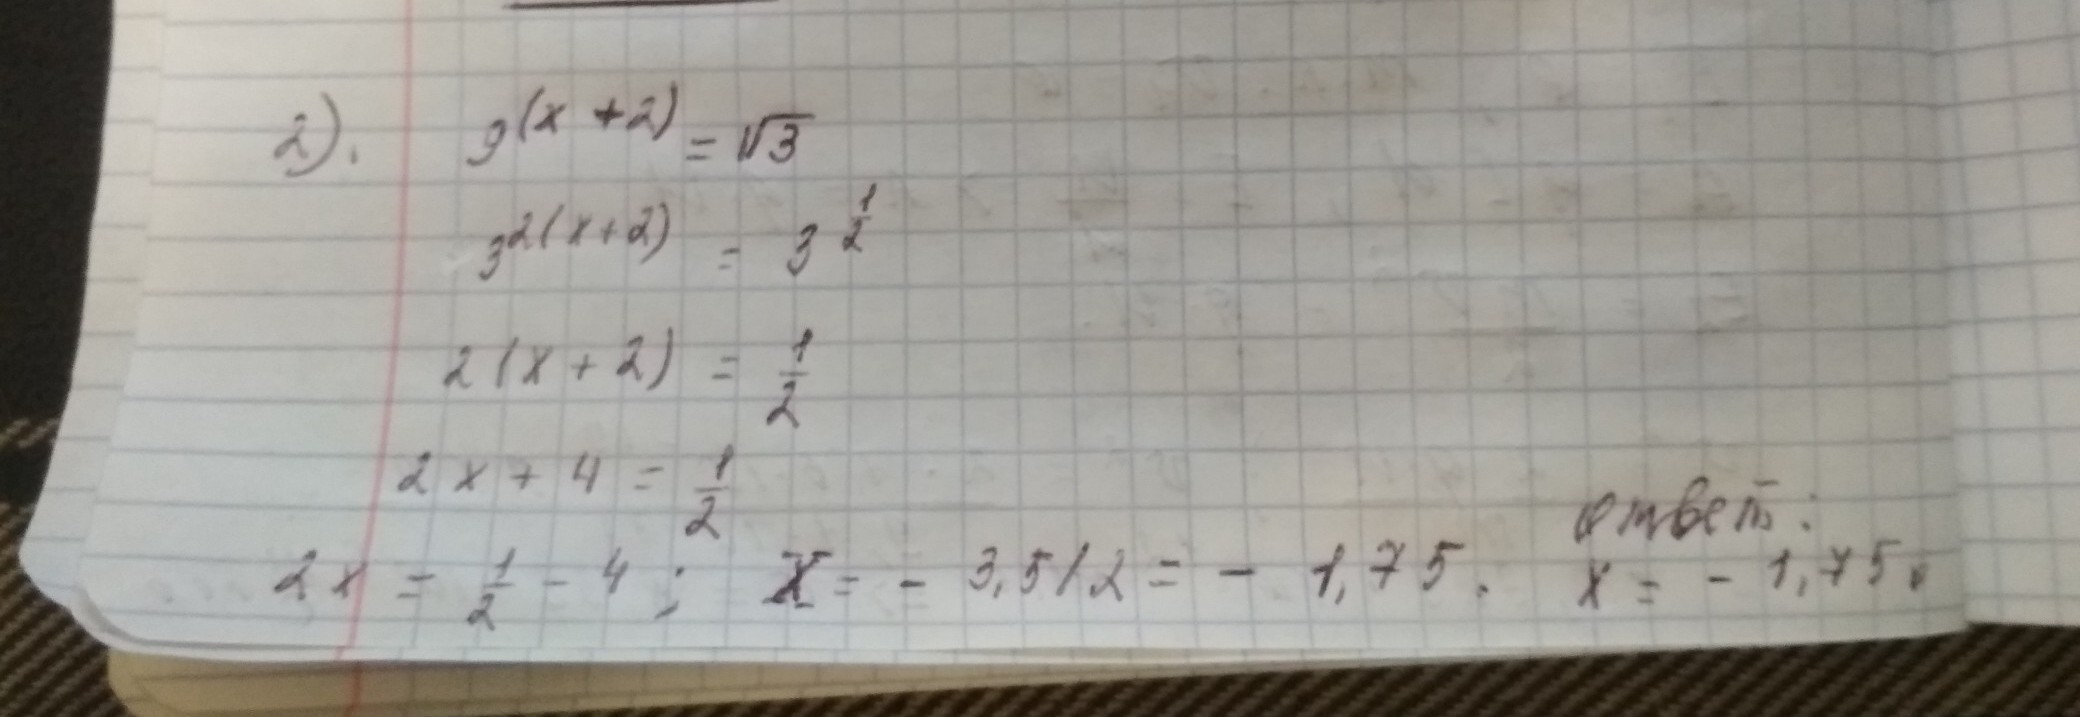 2). 9^(x+2) = √3
3^2(x+2) = 3^1/2
2(x+2) = 1/2
2x + 4 = 1/2
2x = 1/2 - 4; x = - 3,5/2 = - 1,75.
ответ:
x = - 1,75.